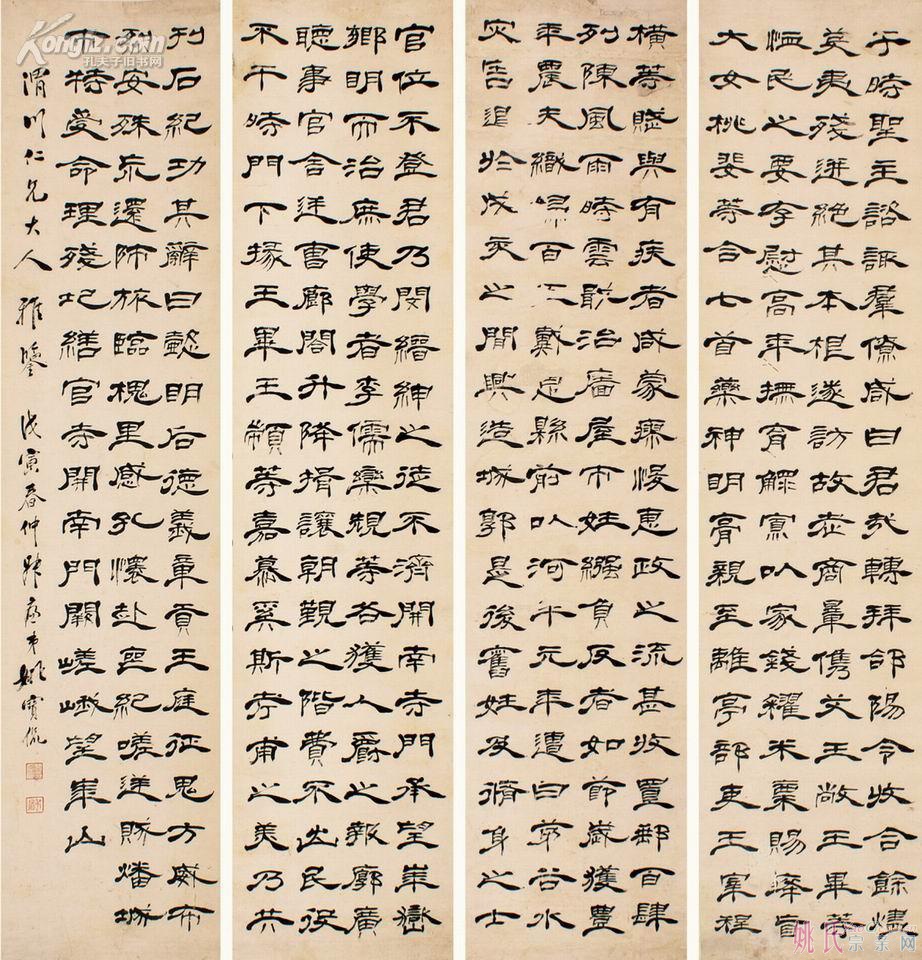 于時聖主諮諏羣僚咸曰君哉轉拜郃陽令收合餘燼
芟夷殘迸絕其本根遂訪故老商量儁艾王敞王畢等
恤民之要存慰高年撫育鰥寡以家錢糴米粟賜癃盲
大女桃婓等合七首藥神明膏親至離亭部吏王宰程
橫等賦與有疾者咸蒙瘳悛惠政之流甚於置郵百肆
列陳風雨時雲戢治廧屋市姓繈負反者如節歲獲豐
年農夫織婦百工戴恩縣前以河平元年遭白茅谷水
災害退於戊亥之間興造城郭是後舊姓及脩身之士
官位不登君乃閔縉紳之徒不濟開南寺門承望華嶽
鄉明而治庶使學者李儒欒規等各獲人爵之報廓廣
聽事官舍廷曹廊閣升降揖讓朝覲之階費不出民役
不干時門下掾王畢王顡等嘉慕奚斯考甫之美乃共
刊石紀功其辭曰懿明后德義章貢王庭征鬼方威布
烈安殊荒還師旅臨槐里感孔懷赴喪紀嗟逆賊燔城
市特受命理殘圮繕官寺開南門闕嵯峨望華山
渭川仁兄大人 雅鑒 戊寅春仲 弟姚寶侃
Kongfz.com
孔夫子旧书网
姚氏宗亲网